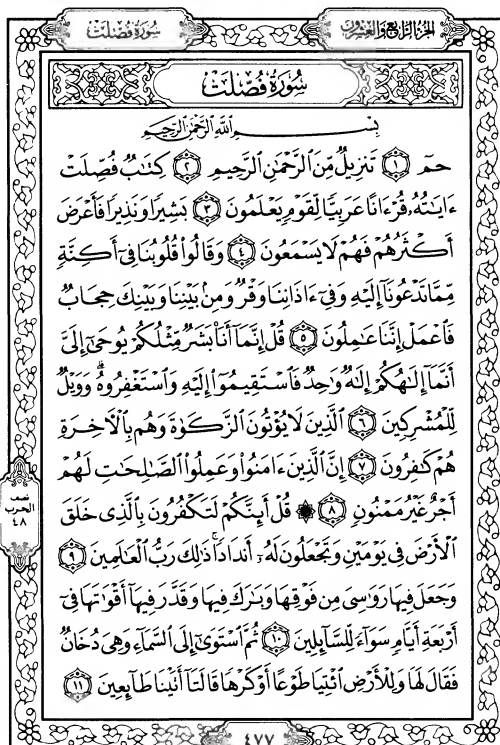 الجزء الرابع والعشرون
سُورَةُ فُصِّلَتْ
سُورَةُ فُصِّلَتْ
بِسْمِ اللَّهِ الرَّحْمَٰنِ الرَّحِيمِ
حمٓ ١ تَنزِيلٌ مِّنَ الرَّحْمَٰنِ الرَّحِيمِ ٢ كِتَابٌ فُصِّلَتْ
ءَايَاتُهُۥ قُرْءَانًا عَرَبِيًّا لِّقَوْمٍ يَعْلَمُونَ ٣ بَشِيرًا وَنَذِيرًا فَأَعْرَضَ
أَكْثَرُهُمْ فَهُمْ لَا يَسْمَعُونَ ٤ وَقَالُوا۟ قُلُوبُنَا فِىٓ أَكِنَّةٍ
مِّمَّا تَدْعُونَآ إِلَيْهِ وَفِىٓ ءَاذَانِنَا وَقْرٌ وَمِنۢ بَيْنِنَا وَبَيْنِكَ حِجَابٌ
فَاعْمَلْ إِنَّنَا عَٰمِلُونَ ٥ قُلْ إِنَّمَآ أَنَا۠ بَشَرٌ مِّثْلُكُمْ يُوحَىٰٓ إِلَىَّ
أَنَّمَآ إِلَٰهُكُمْ إِلَٰهٌ وَٰحِدٌ فَاسْتَقِيمُوٓا۟ إِلَيْهِ وَاسْتَغْفِرُوهُ ۗ وَوَيْلٌ
لِّلْمُشْرِكِينَ ٦ الَّذِينَ لَا يُؤْتُونَ الزَّكَوٰةَ وَهُم بِالْأَخِرَةِ
هُمْ كَٰفِرُونَ ٧ إِنَّ الَّذِينَ ءَامَنُوا۟ وَعَمِلُوا۟ الصَّٰلِحَٰتِ لَهُمْ
أَجْرٌ غَيْرُ مَمْنُونٍ ٨ ۞ قُلْ أَئِنَّكُمْ لَتَكْفُرُونَ بِالَّذِى خَلَقَ
الْأَرْضَ فِى يَوْمَيْنِ وَتَجْعَلُونَ لَهُۥٓ أَندَادًا ۚ ذَٰلِكَ رَبُّ الْعَٰلَمِينَ ٩
وَجَعَلَ فِيهَا رَوَٰسِىَ مِن فَوْقِهَا وَبَٰرَكَ فِيهَا وَقَدَّرَ فِيهَآ أَقْوَٰتَهَا فِىٓ
أَرْبَعَةِ أَيَّامٍ سَوَآءً لِّلسَّآئِلِينَ ١٠ ثُمَّ اسْتَوَىٰٓ إِلَى السَّمَآءِ وَهِىَ دُخَانٌ
فَقَالَ لَهَا وَلِلْأَرْضِ ائْتِيَا طَوْعًا أَوْ كَرْهًا قَالَتَآ أَتَيْنَا طَآئِعِينَ ١١
نصف
الحزب
٤٨
٤٧٧